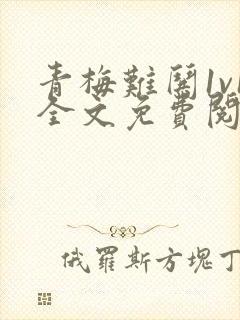 青梅難鬭1v1
全文免費閱
俄羅斯方塊丁